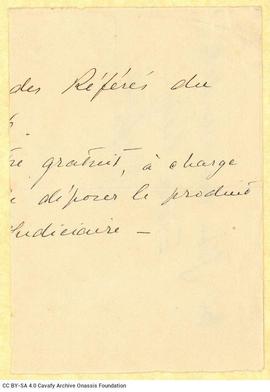 des Référés du
gratuit, à charge
déposer le produit
judiciaire —
CC BY-SA 4.0 Cavafy Archive Onassis Foundation